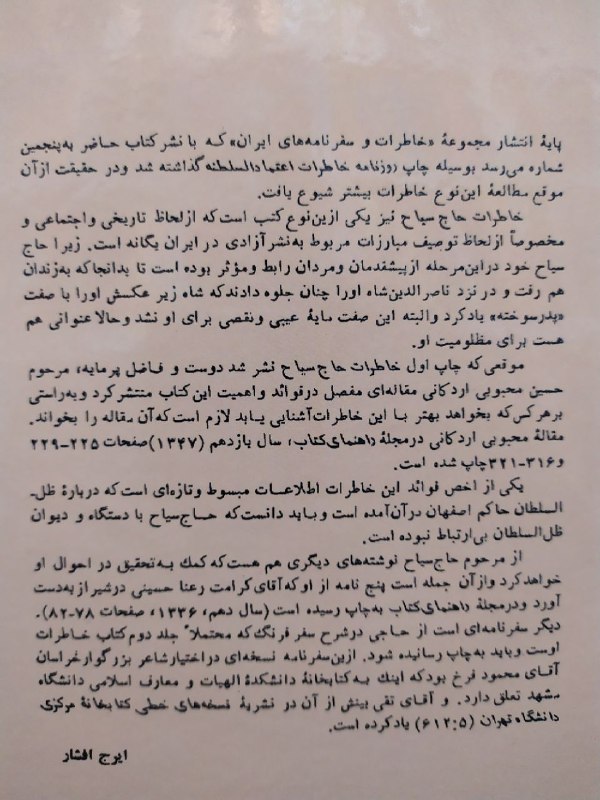 پایهٔ انتشار مجموعهٔ «خاطرات و سفرنامه‌های ایران» که با نشر کتاب حاضر به پنجمین
شماره می‌رسد بوسیله چاپ روزنامه خاطرات اعتمادالسلطنه گذاشته شد ودر حقیقت از آن
موقع مطالعهٔ این نوع خاطرات بیشتر شیوع یافت.
خاطرات حاج سیاح نیز یکی ازین نوع کتب است که از لحاظ تاریخی واجتماعی و
مخصوصاً از لحاظ توصیف مبارزات مربوط به نشر آزادی در ایران یگانه است. زیرا حاج
سیاح خود دراین مرحله از پیشقدمان ومردان رابط ومؤثر بوده است تا بدانجا که به زندان
هم رفت و در نزد ناصرالدین شاه اورا چنان جلوه دادند که شاه زیر عکسش اورا با صفت
«پدرسوخته» یاد کرد والبته این صفت مایهٔ عیبی ونقصی برای او نشد وحالا عنوانی هم
هست برای مظلومیت او.
موقعی که چاپ اول خاطرات حاج سیاح نشر شد دوست و فاضل پرمایه، مرحوم
حسین محبوبی اردکانی مقاله‌ای مفصل در فوائد واهمیت این کتاب منتشر کرد وبه راستی
بر هر کس که بخواهد بهتر با این خاطرات آشنایی یابد لازم است که آن مقاله را بخواند.
مقالهٔ محبوبی اردکانی در مجلهٔ راهنمای کتاب، سال یازدهم (۱۳۴۷) صفحات ۲۲۵-۲۲۹
و ۳۱۶-۳۲۱ چاپ شده است.
یکی از اخص فوائد این خاطرات اطلاعات مبسوط وتازه‌ای است که دربارهٔ ظل‌ـ
السلطان حاکم اصفهان در آن آمده است وباید دانست که حاج سیاح با دستگاه و دیوان
ظل‌السلطان بی‌ارتباط نبوده است.
از مرحوم حاج سیاح نوشته‌های دیگری هم هست که کمک به تحقیق در احوال او
خواهد کرد واز آن جمله است پنج نامه از او که آقای کرامت رعنا حسینی در شیراز به دست
آورد ودر مجلهٔ راهنمای کتاب به چاپ رسیده است (سال دهم، ۱۳۳۶، صفحات ۷۸-۸۲).
دیگر سفرنامه‌ای است از حاجی در شرح سفر فرنگ که محتملاً جلد دوم کتاب خاطرات
اوست وباید به چاپ رسانیده شود. ازین سفرنامه نسخه‌ای در اختیار شاعر بزرگوار خراسان
آقای محمود فرخ بود که اینك به کتابخانهٔ دانشکدهٔ الهیات و معارف اسلامی دانشگاه
مشهد تعلق دارد. و آقای تقی بینش از آن در نشریهٔ نسخه‌های خطی کتابخانهٔ مرکزی
دانشگاه تهران (۵:۶۱۲) یاد کرده است.
ایرج افشار